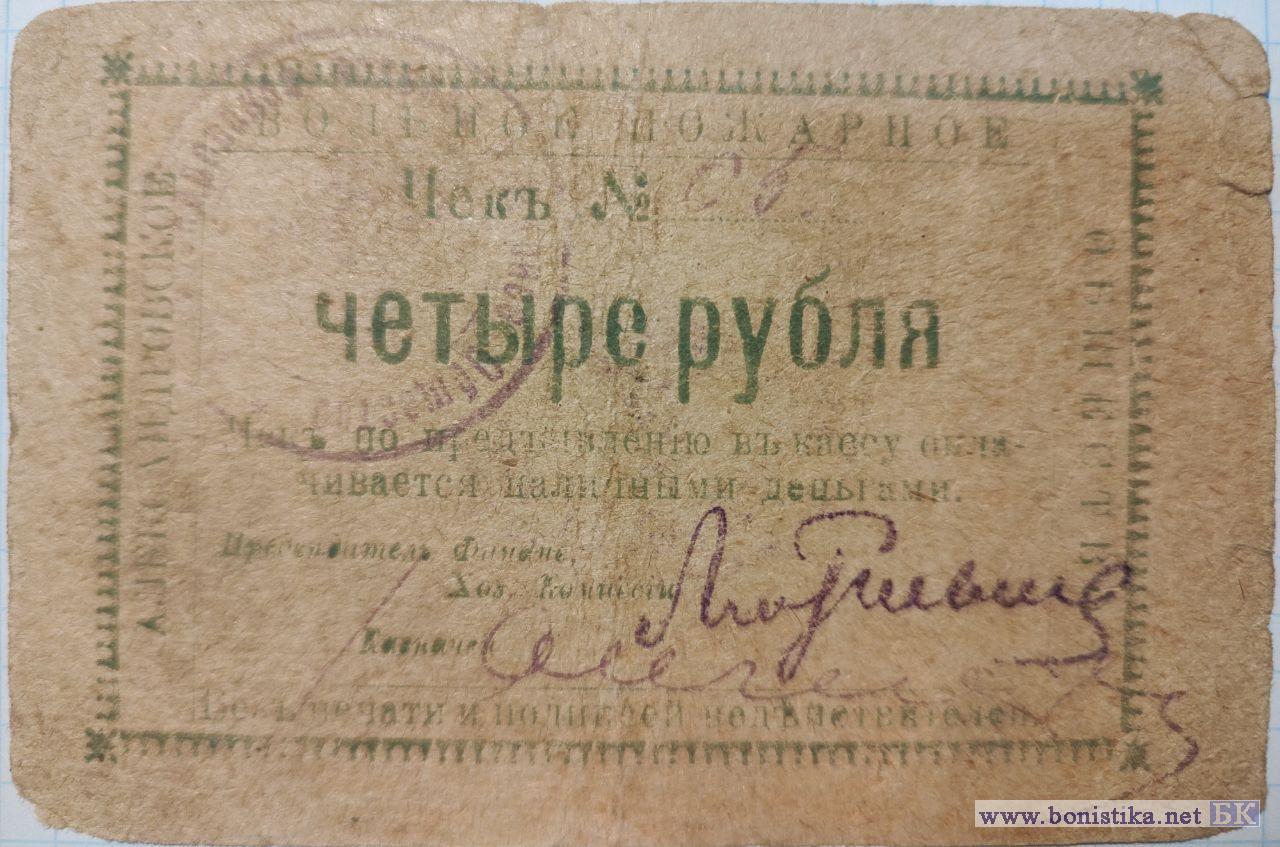 ВОЛЬНОЕ ПОЖАРНОЕ
АЛЕКСАНДРОВСКОЕ
Чекъ №
ОБЩЕСТВО
четыре рубля
Чекъ по предъявленію въ кассу опла-
чивается наличными деньгами.
Предсѣдатель Финанс.
Хоз. Комиссіи
Казначей
Безъ печати и подписей недѣйствителен.
www.bonistika.net БК